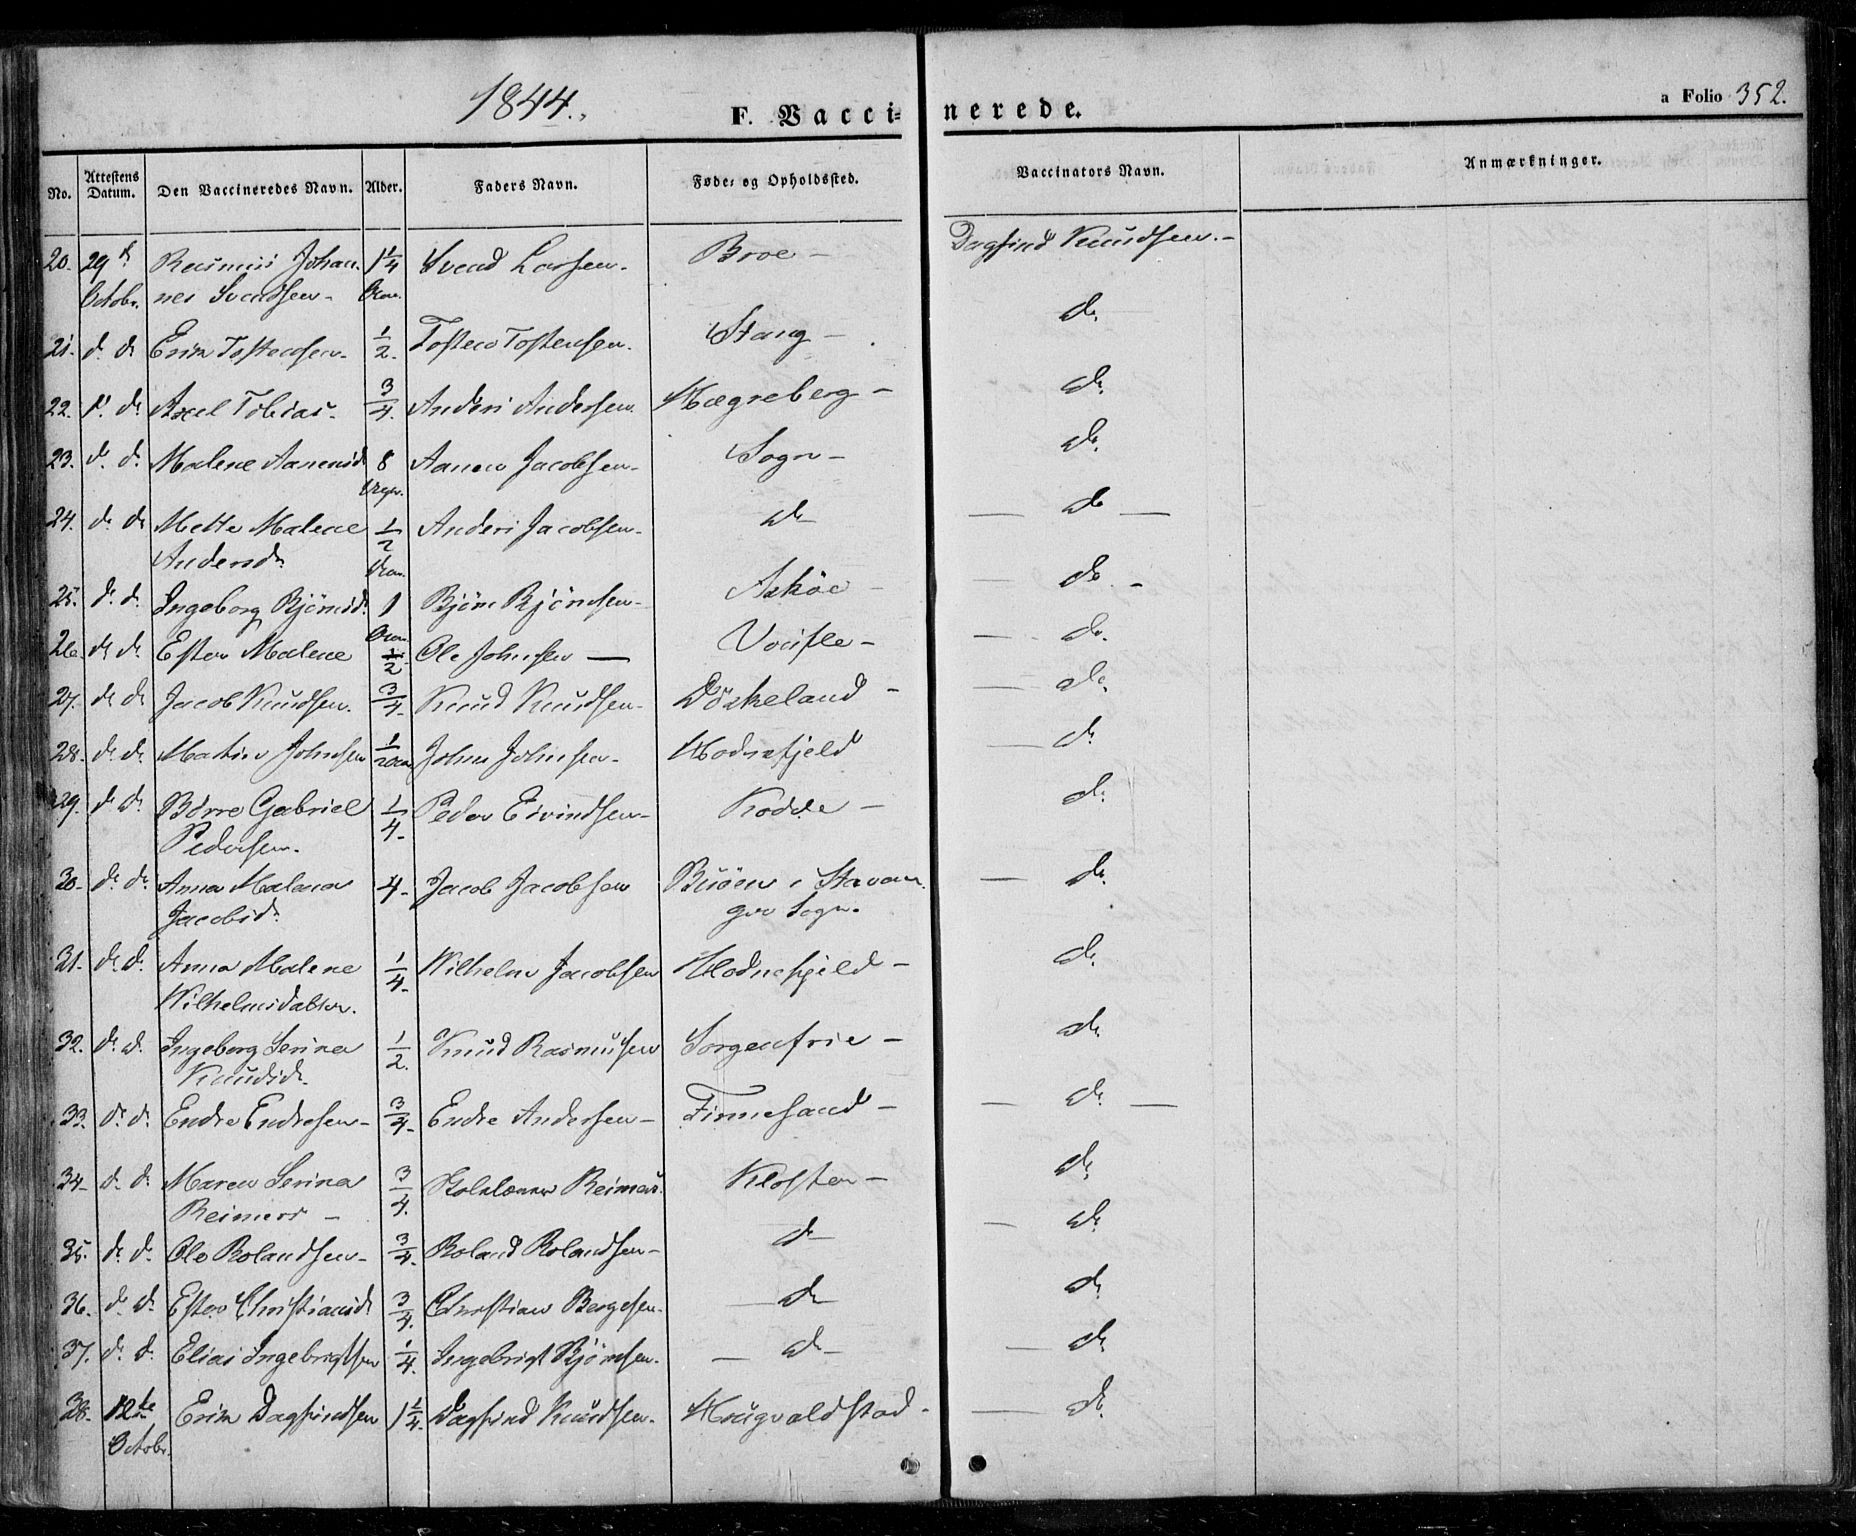 1844.
F. Vaccinerede.
a Folio 352.
No. Attestens Datum. Den Vaccineredes Navn. Alder. Faders Navn. Føde- og Opholdssted. Vaccinators Navn. Anmærkninger.
20. 29d Rasmus Johan- 1¼ Svend Larsen. Broe - Dagfind Knudsen. -
Octobr. nes Svendsen -
21. d. d. Erik Tostensen. ½. Tosten Tostensen. Stang - d.
22. d. d. Axel Tobias. ¾. Anders Andersen. Hægreberg - d.
23. d. d. Malene Aanensd. 8 Aanen Jacobsen. Sogn - d.
24. d. d. Mette Malene ½ Anders Jacobsen. d. — d. —
Andersd.
25. d. d. Ingeborg Bjørnsd. 1 Bjørn Bjørnsen. Askøe - — d. -
26. d. d. Ester Malene ½ Ole Johnsen — — d.
27. d. d. Jacob Knudsen. ¾. Knud Knudsen. Døskeland - — d.
28. d. d. Martin Johnsen John Johnsen. Hodnefjeld — d.
29. d. d. Børre Gabriel ¼. Peder Eivindsen. Kodde - d.
Pedersen.
30. d. d. Anna Malena 4. Jacob Jacobsen Buøen i Stavan- — d.
Jacobsd. ger Sogn.
31. d. d. Anna Malene ¼. Wilhelm Jacobsen Hodnefjeld - d.
Wilhelmsdatter.
32. d. d. Ingeborg Serina ½. Knud Rasmussen Sorgenfrie - d.
Knudsd.
33. d. d. Endre Endresen - ¾. Endre Andersen - Finnesand - — d. —
34. d. d. Maren Serina ¾. Reimers. Kloster - d.
Reimers -
35. d. d. Ole Rolandsen - ¾. Roland Rolandsen - d. — d.
36. d. d. Ester Christiansd. ¾. Christian Bergesen. — d. d.
37. d. d. Elias Ingebrigtsen ¼. Ingebrigt Bjørnsen. — d. - — d.
38. 12te Erik Dagfindsen 1¼. Dagfind Knudsen. Haugvaldstad. — d.
Octobr.